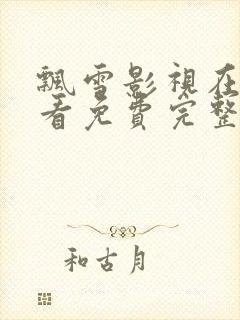 飄雪影視在
看免費完整
和古月